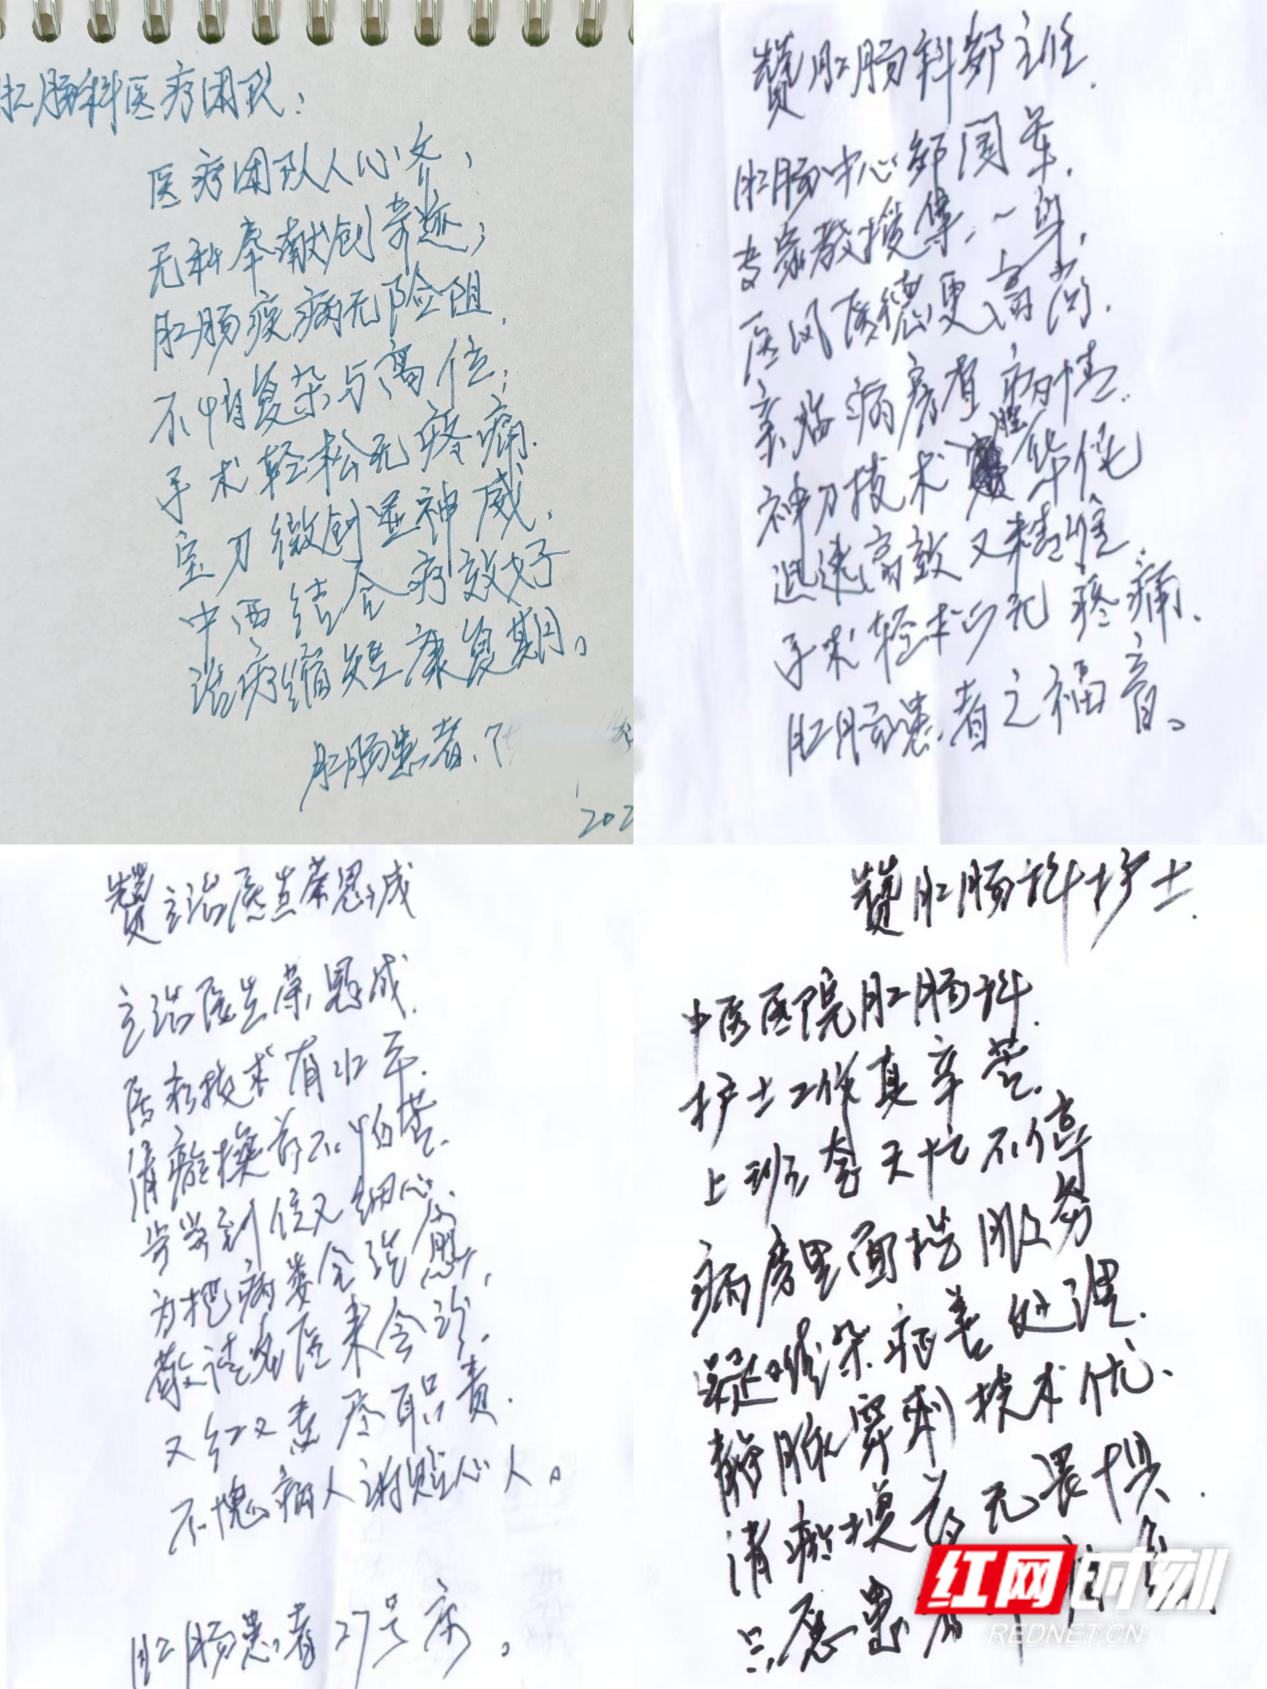 肛肠科医疗团队:
医疗团队人心齐,
无私奉献创奇迹;
肛肠疾病无险阻,
不怕复杂与高位;
手术轻松无疼痛.
宝刀微创显神威,
中西结合疗效好
治疗缩短康复期。
肛肠患者.
202
赞肛肠科邹主任.
肛肠中心邹国军,
专家教授传一身,
医风医德更高尚.
亲临病房查病情.
神刀技术胜华佗
迅速高效又精准
手术轻松无疼痛.
肛肠患者之福音。
赞主治医生荣恩成
主治医生荣恩成.
医疗技术有水平.
清疮换药不怕苦.
步步到位又细心
为把病类全治愈,
敬请名医来会诊.
又红又专尽职责.
不愧病人谢贴心人。
肛肠患者27号床。
赞肛肠科护士.
中医医院肛肠科.
护士工作真辛苦.
上班拿天忙不停
病房里面搞服务
疑难杂症善处理.
静脉穿刺技术优.
清疮换药无畏惧.
只愿患者
红网时刻
REDNET.CN